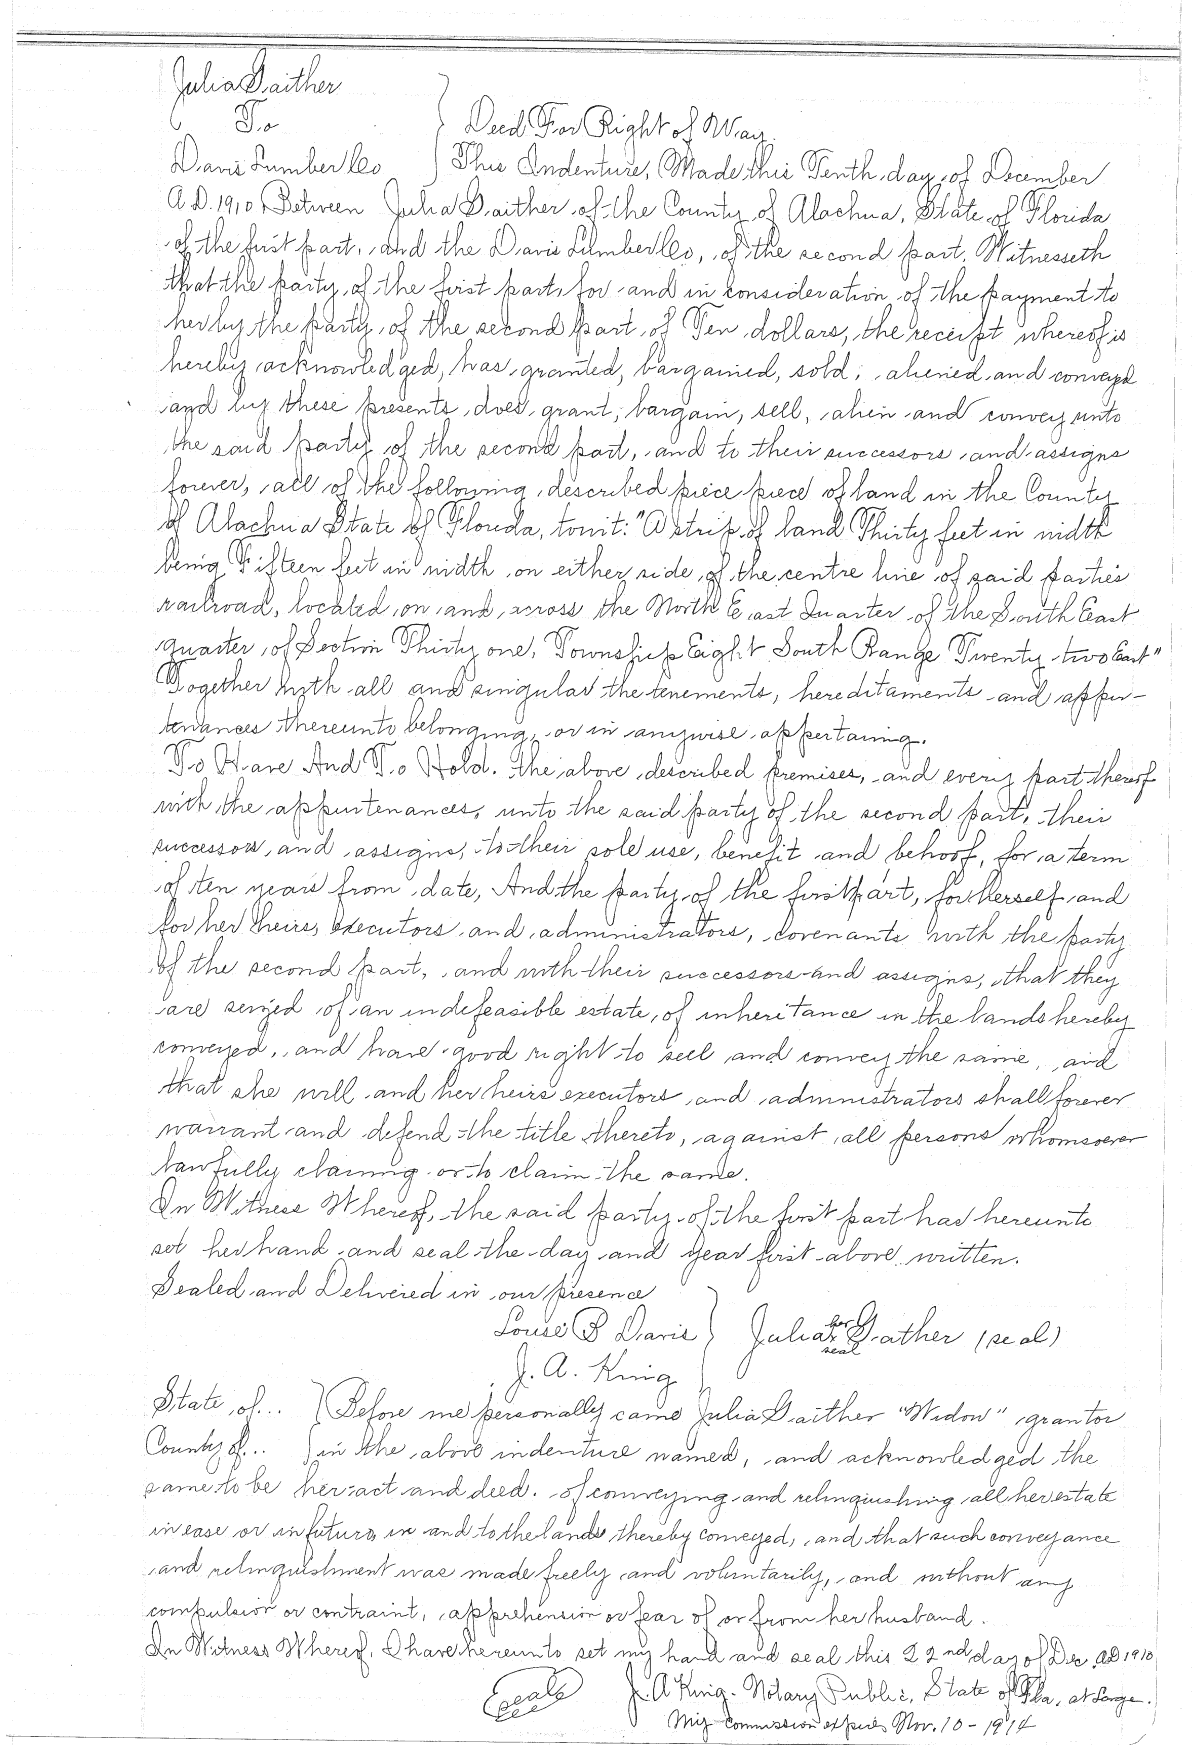 Julia Gaither
To
Deed For Right of Way.
Davis Lumber Co } This Indenture, Made this Tenth day of December
A.D. 1910 Between Julia Gaither of the County of Alachua, State of Florida
of the first part, and the Davis Lumber Co, of the second part, Witnesseth
that the party of the first part, for and in consideration of the payment to
her by the party of the second part of Ten dollars, the receipt whereof is
hereby acknowledged, has granted, bargained, sold, aliened and conveyed
and by these presents does grant, bargain, sell, alien and convey unto
the said party of the second part, and to their successors and assigns
forever, all of the following described piece piece of land in the County
of Alachua State of Florida, towit: "A strip of land Thirty feet in width
being Fifteen feet in width on either side of the centre line of said parties
railroad, located on and across the North East Quarter of the South East
quarter of Section Thirty one, Township Eight South Range Twenty two East"
Together with all and singular the tenements, hereditaments and appur-
tenances thereunto belonging, or in anywise appertaining.
To Have And To Hold. the above described premises, and every part thereof
with the appurtenances, unto the said party of the second part, their
successors and assigns, to their sole use, benefit and behoof, for a term
of ten years from date, And the party of the first part, for herself and
for her heirs, executors and administrators, covenants with the party
of the second part, and with their successors and assigns, that they
are seized of an indefeasible estate, of inheritance in the lands hereby
conveyed, and have good right to sell and convey the same, and
that she will and her heirs executors and administrators shall forever
warrant and defend the title thereto, against all persons whomsoever
lawfully claiming or to claim the same.
In Witness Whereof, the said party of the first part has hereunto
set her hand and seal the day and year first above written.
Sealed and Delivered in our presence
Louse B Davis } Julia her x seal Gaither (seal)
J. A. King
State of... } Before me personally came Julia Gaither "Widow" grantor
County of... } in the above indenture named, and acknowledged the
same to be her act and deed. of conveying and relinquishing all her estate
in ease or in futura in and to the lands thereby conveyed, and that such conveyance
and relinquishment was made freely and voluntarily, and without any
compulsion or contraint, apprehension or fear of or from her husband.
In Witness Whereof, I have hereunto set my hand and seal this 22nd day of Dec. AD 1910
Seal J. A King. Notary Public, State of Fla, at Large.
My commission expires Nov. 10 - 1914